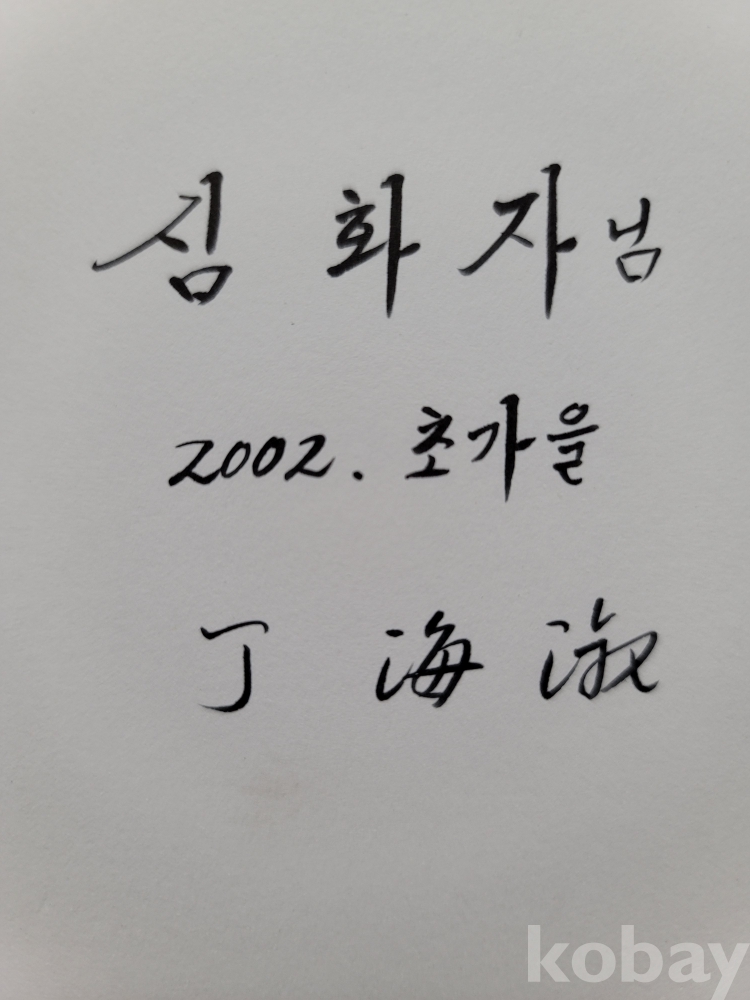 심 화 자 님
2002. 초가을
丁 海 淑
kobay